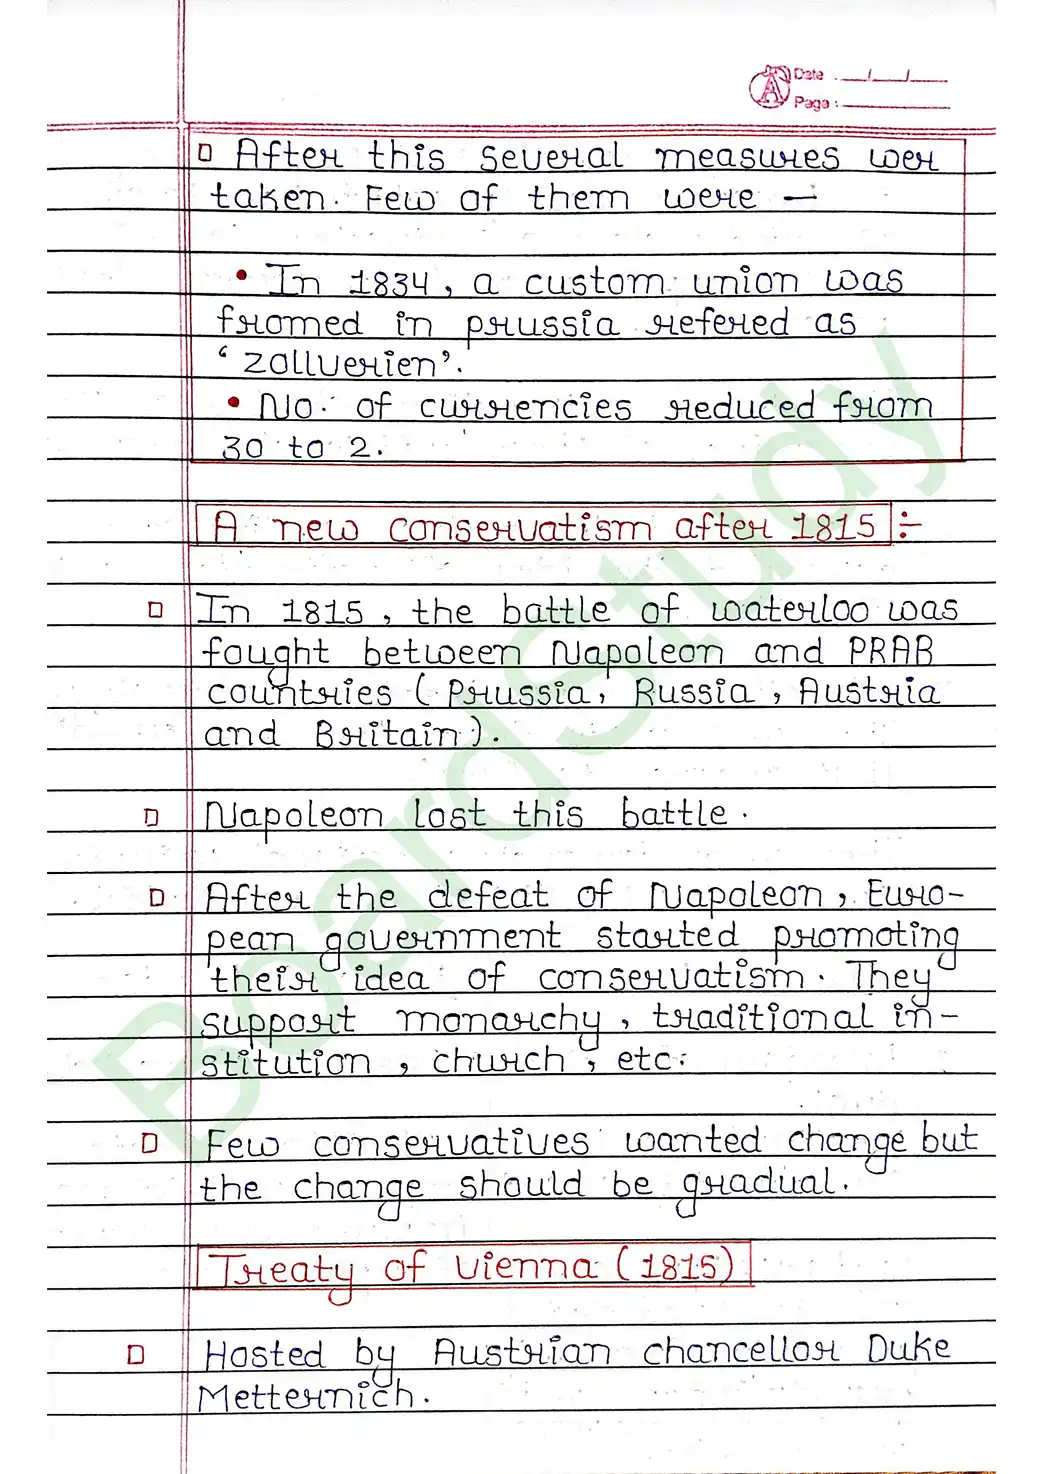 Date : __/__/__
Page :
▯ After this several measures wer
taken. Few of them were —
• In 1834, a custom union was
fromed in prussia refered as
‘zollverien’.
• No. of currencies reduced from
30 to 2.
A new conservatism after 1815 :-
▯ In 1815, the battle of waterloo was
fought between Napoleon and PRAB
countries (Prussia, Russia, Austria
and Britain).
▯ Napoleon lost this battle.
▯ After the defeat of Napoleon, Euro-
pean government started promoting
their idea of conservatism. They
support monarchy, traditional in-
stitution, church, etc.
▯ Few conservatives wanted change but
the change should be gradual.
Treaty of Vienna (1815)
▯ Hosted by Austrian chancellor Duke
Metternich.
BoardStudy